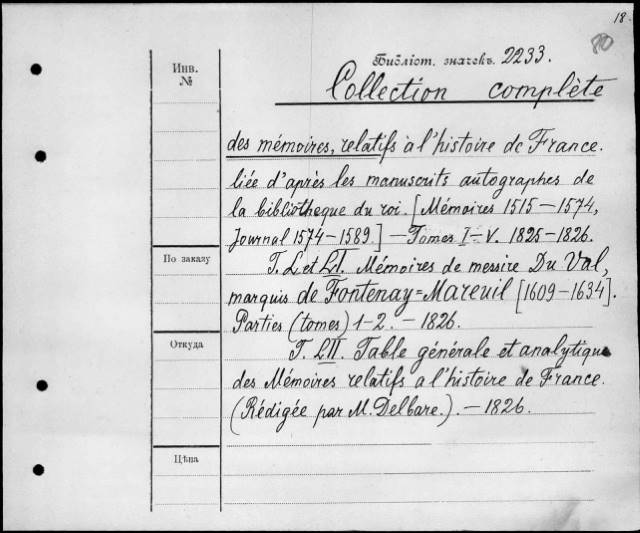 18.
80
Инв.
№
Библіот. значекъ. 2233.
Collection complète
des mémoires, relatifs à l'histoire de France.
liée d'après les manuscrits autographes de
la bibliothèque du roi. [Mémoires 1515—1574,
Journal 1574—1589.] — Tomes I-V. 1825-1826.
По заказу
T. L et LI. Mémoires de messire Du Val,
marquis de Fontenay=Mareuil [1609—1634].
Parties (tomes) 1-2. — 1826.
Откуда
T. LII. Table générale et analytique
des Mémoires relatifs a l'histoire de France.
(Rédigée par M. Delbare.). — 1826.
Цѣна